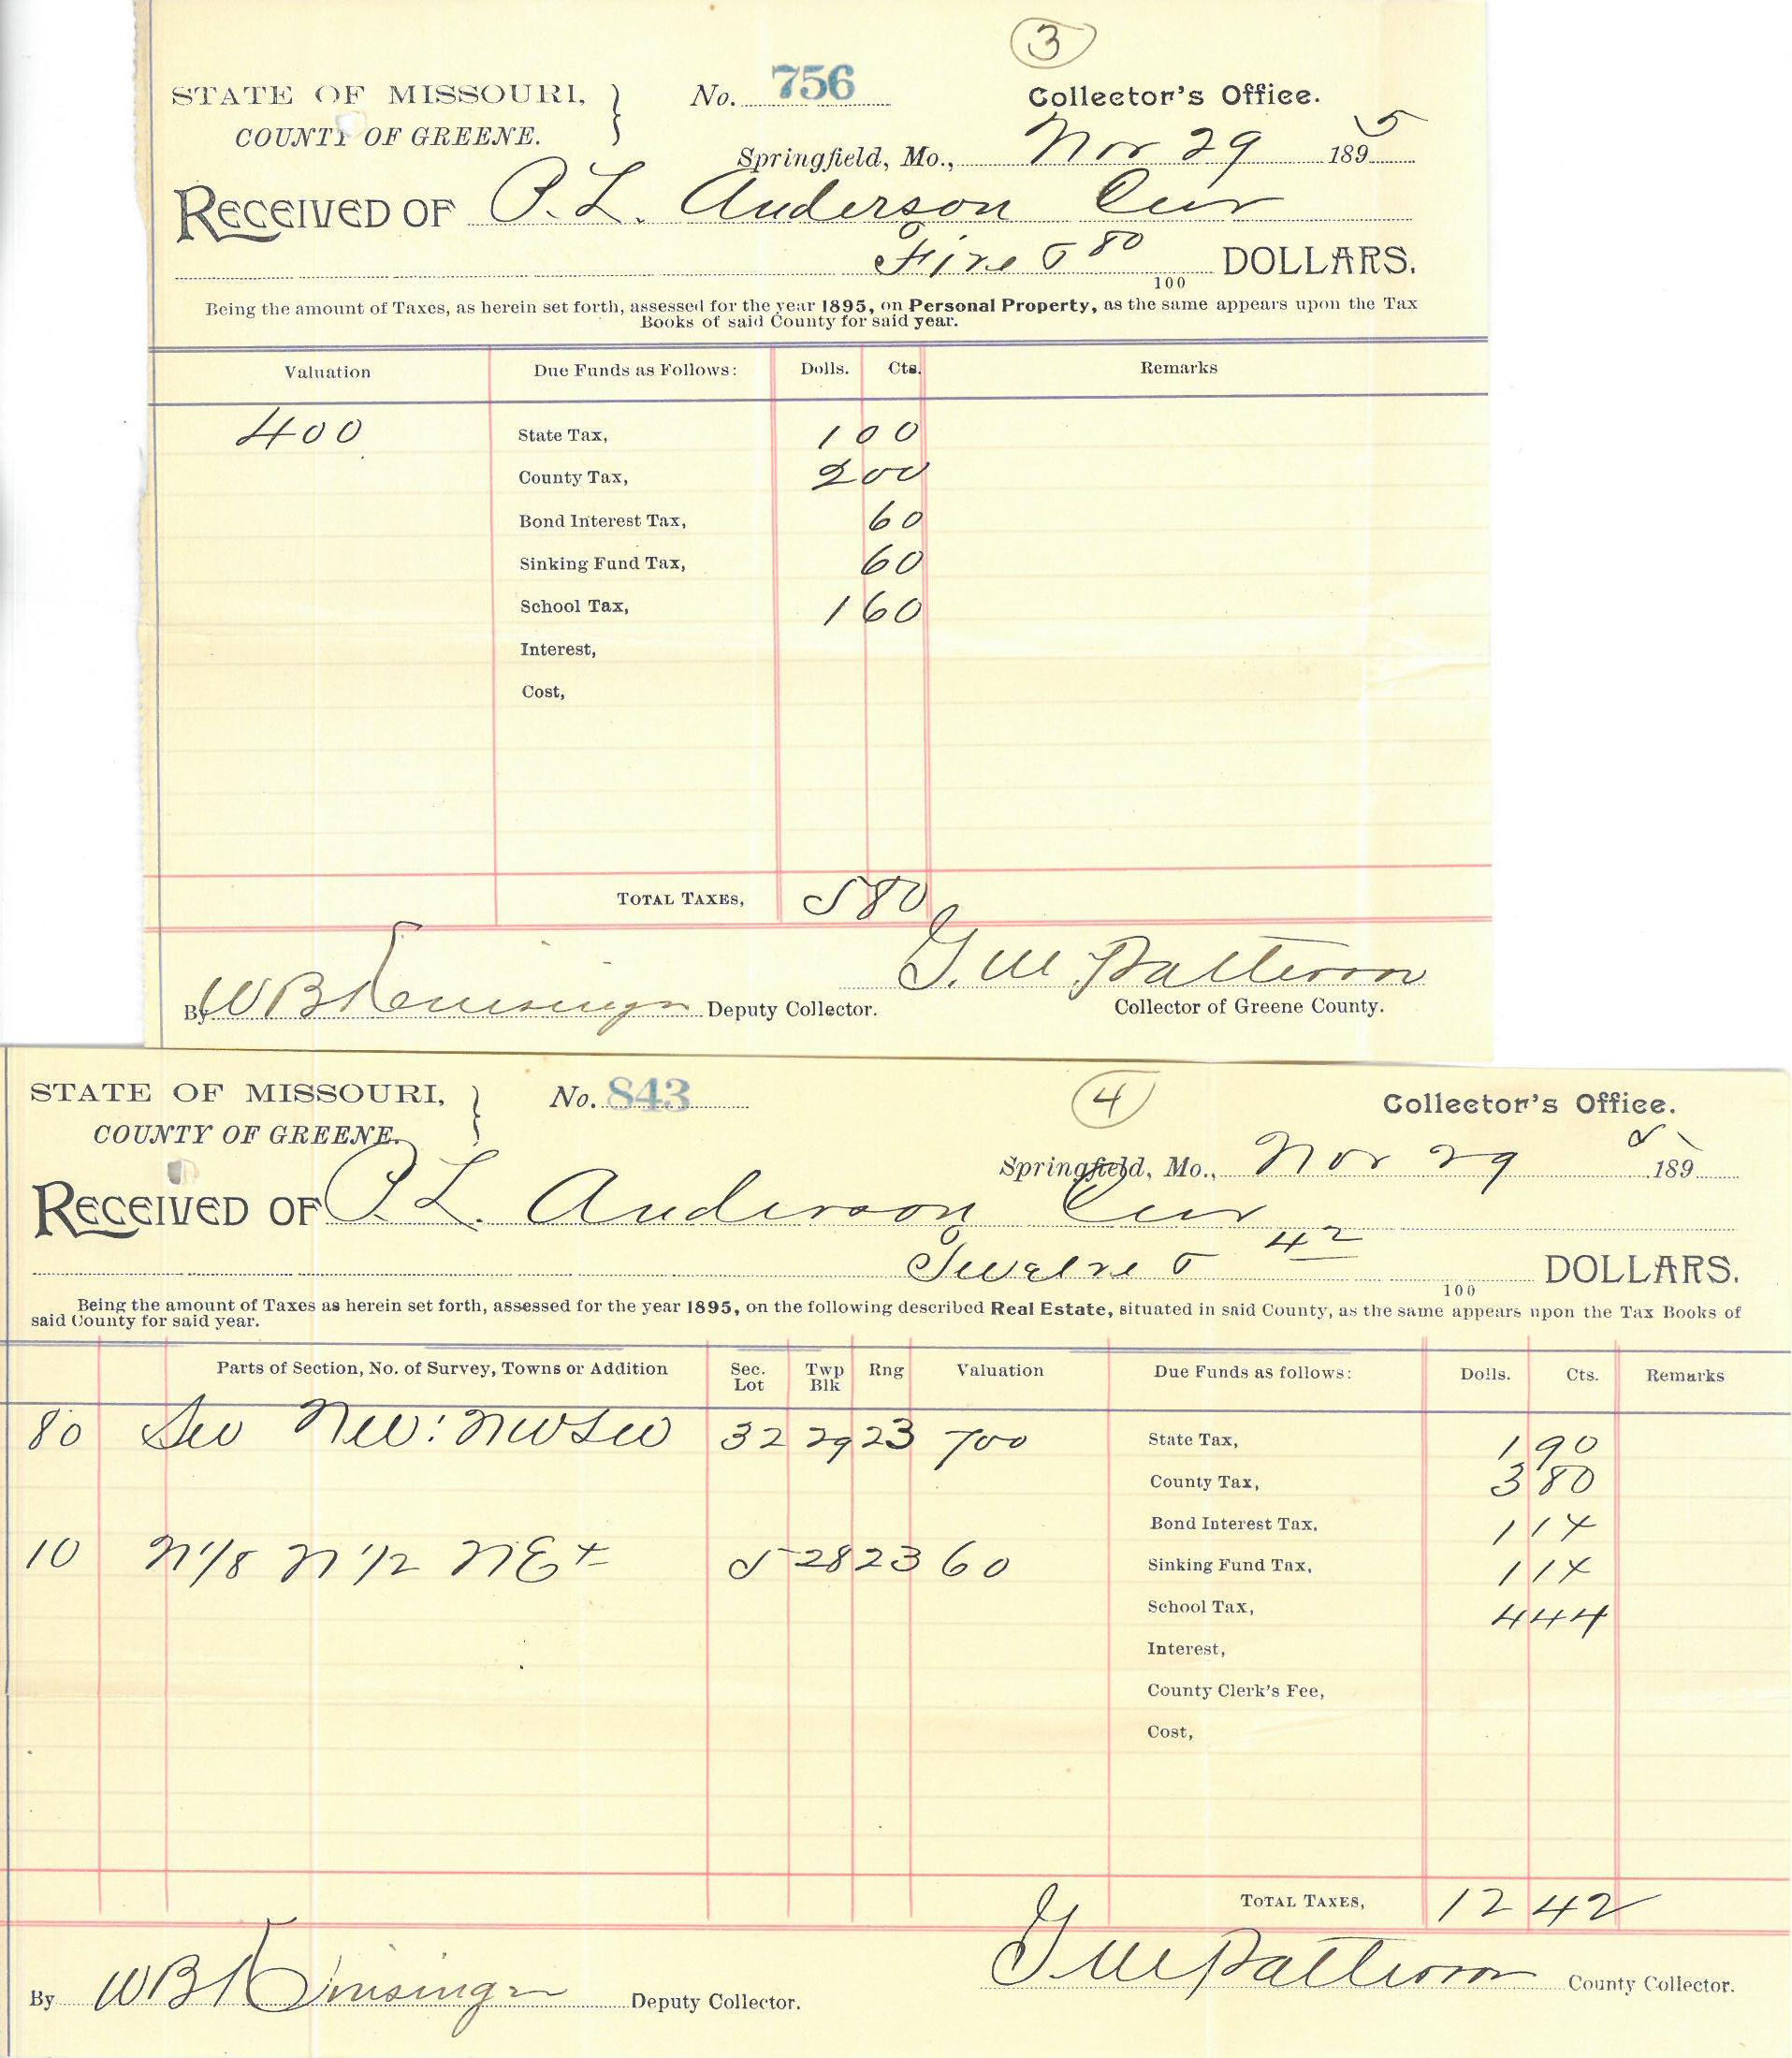 3
STATE OF MISSOURI, } No. 756 Collector's Office.
COUNTY OF GREENE. Springfield, Mo., Nov 29 1895
RECEIVED OF P. L. Anderson Cur
Five & 80/100 DOLLARS.
Being the amount of Taxes, as herein set forth, assessed for the year 1895, on Personal Property, as the same appears upon the Tax
Books of said County for said year.
Valuation Due Funds as Follows: Dolls. Cts. Remarks
400 State Tax, 1 00
County Tax, 2 00
Bond Interest Tax, 60
Sinking Fund Tax, 60
School Tax, 1 60
Interest,
Cost,
TOTAL TAXES, 5 80
G. W. Patterson
By W B Deputy Collector. Collector of Greene County.
STATE OF MISSOURI, } No. 843 4 Collector's Office.
COUNTY OF GREENE. Springfield, Mo., Nov 29 1895
RECEIVED OF P. L. Anderson Cur
Twelve & 42/100 DOLLARS.
Being the amount of Taxes as herein set forth, assessed for the year 1895, on the following described Real Estate, situated in said County, as the same appears upon the Tax Books of
said County for said year.
Parts of Section, No. of Survey, Towns or Addition Sec. Lot Twp Blk Rng Valuation Due Funds as follows: Dolls. Cts. Remarks
80 SW NW: NW SW 32 29 23 700 State Tax, 1 90
County Tax, 3 80
Bond Interest Tax, 1 14
10 N 1/8 N 1/2 NE 5 28 23 60 Sinking Fund Tax, 1 14
School Tax, 4 44
Interest,
County Clerk's Fee,
Cost,
TOTAL TAXES, 12 42
G W Patterson County Collector.
By W B Deputy Collector.